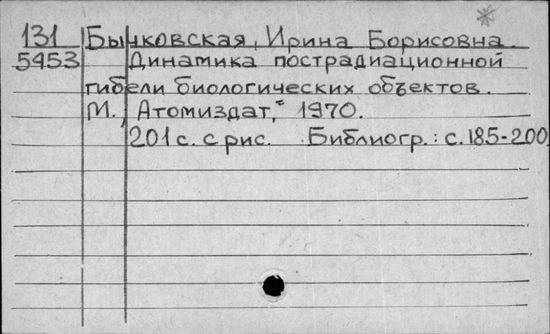 131 Бычковская, Ирина Борисовна.
5453 Динамика пострадиационной
гибели биологических объектов.
М., Атомиздат, 1970.
201 с. с рис. Библиогр.: с. 185-200